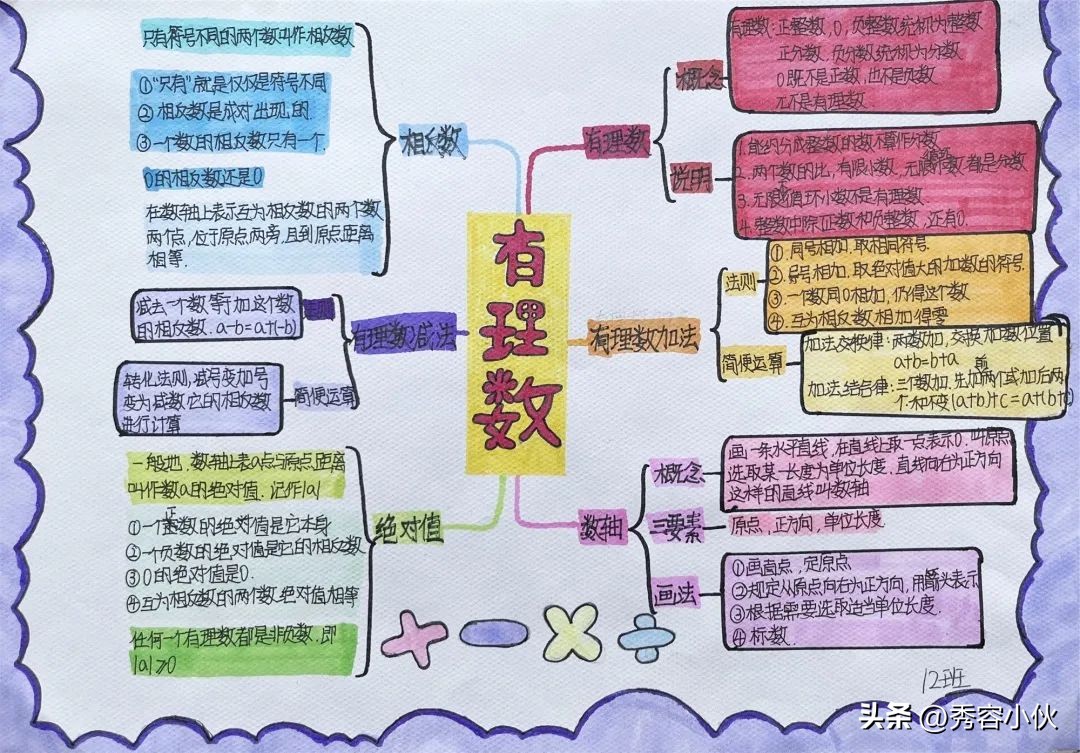 有理数
相反数
只有符号不同的两个数叫作相反数
①“只有”就是仅仅是符号不同
②相反数是成对出现的.
③一个数的相反数只有一个.
0的相反数还是0
在数轴上表示互为相反数的两个数
两个点,位于原点两旁,且到原点距离
相等.
有理数减法
减去一个数等于加这个数
的相反数. a-b=a+(-b)
简便运算
转化法则,减号变加号
变为减数它的相反数
进行计算
绝对值
一般地,数轴上表a点与原点距离
叫作数a的绝对值.记作|a|
①一个正数的绝对值是它本身
②一个负数的绝对值是它的相反数
③0的绝对值是0.
④互为相反数的两个数绝对值相等
任何一个有理数都是非负数.即
|a|≥0
有理数
概念
有理数:正整数,0,负整数统称为整数
正分数.负分数统称为分数
0既不是正数,也不是负数
π不是有理数
说明
1.能约分成整数的数不算作分数
2.两个数的比,有限小数,无限循环小数都是分数
3.无限不循环小数不是有理数.
4.整数中除正数和负整数,还有0.
有理数加法
法则
①.同号相加.取相同符号.
②.异号相加.取绝对值大的加数的符号.
③.一个数同0相加,仍得这个数
④.互为相反数相加得零
简便运算
加法交换律:两数加,交换加数位置
a+b=b+a
加法结合律:三个数加.先加前两个或加后两
个.和不变(a+b)+c=a+(b+c)
数轴
概念
画一条水平直线,在直线上取一点表示0.叫原点
选取某一长度为单位长度.直线向右为正方向
这样的直线叫数轴
三要素
原点,正方向,单位长度
画法
①画直点,定原点
②规定从原点向右为正方向,用箭头表示
③根据需要选取适当单位长度.
④标数.
12班
头条 @秀容小伙